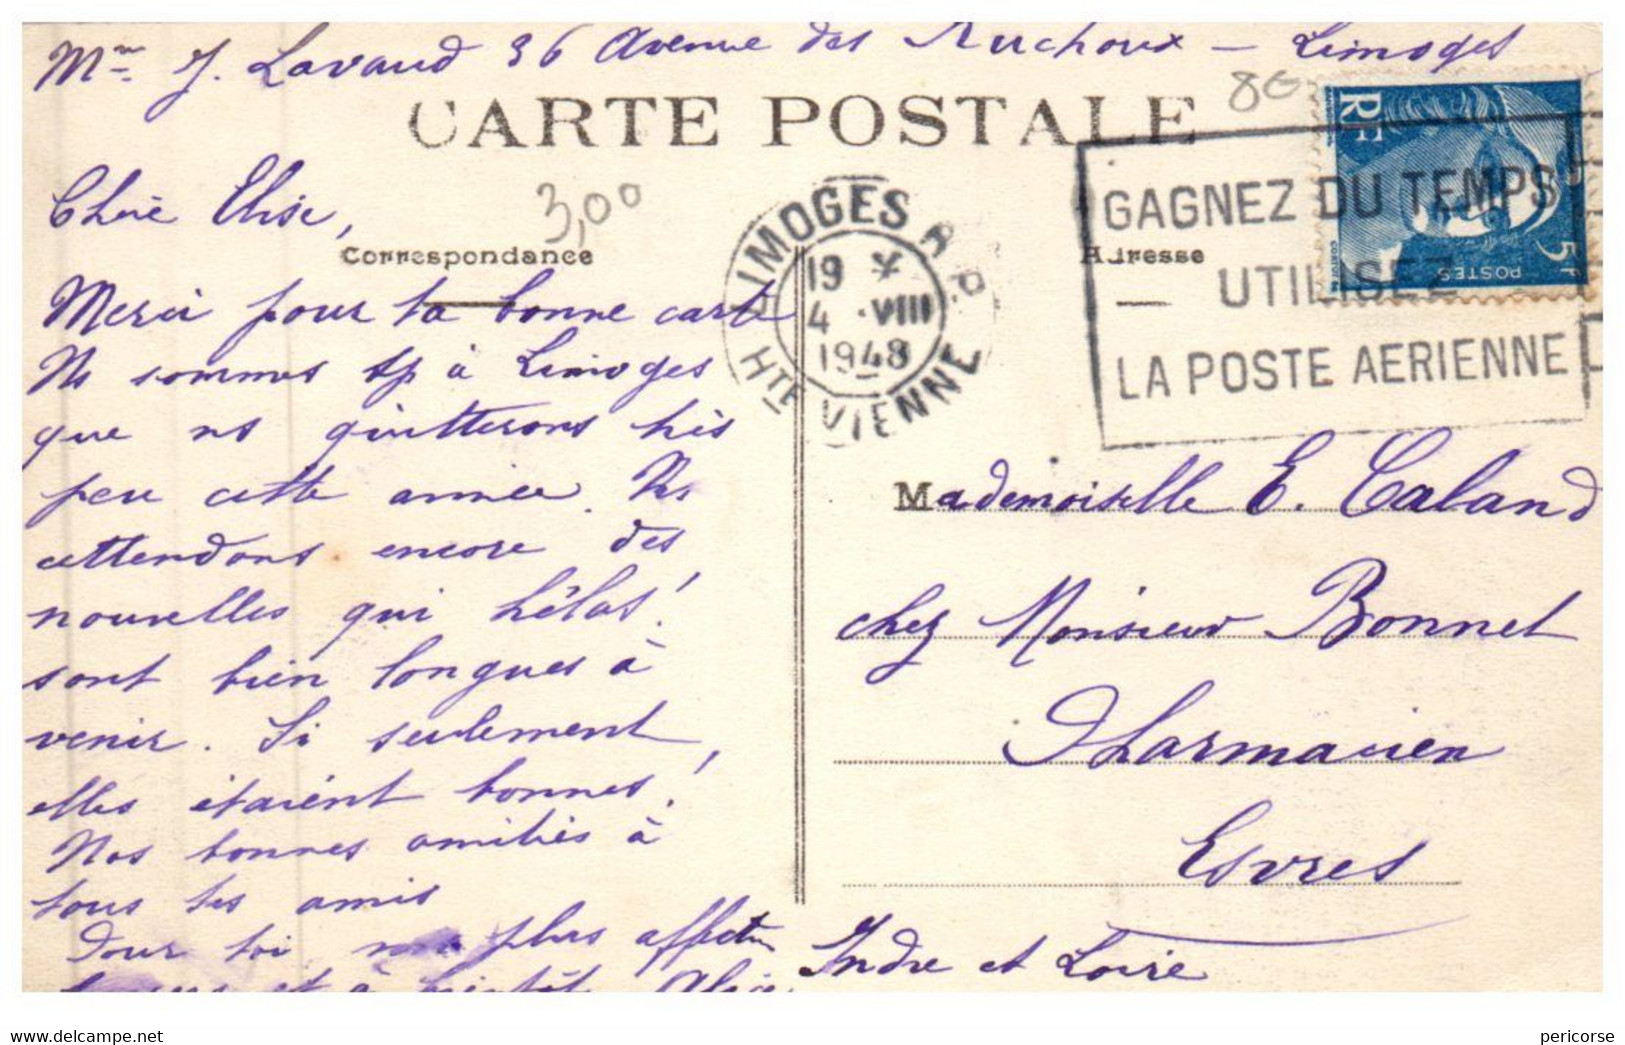 Mme J. Lavaud 36 Avenue des Ruchoux - Limoges
CARTE POSTALE
8€
RF
POSTES
5F
3,00
Chère Elise,
Correspondance
Adresse
LIMOGES R.P.
19 H
4 -VIII
1948
HTE VIENNE
GAGNEZ DU TEMPS
UTILISEZ
LA POSTE AERIENNE
Merci pour ta bonne carte
Ns sommes à Limoges
que ns quitterons très
peu cette année. Ns
attendons encore des
nouvelles qui hélas!
sont bien longues à
venir. Si seulement,
elles étaient bonnes!
Nos bonnes amitiés à
tous tes amis
Pour toi plus affectu
baisers et à bientôt Alice
Mademoiselle E. Caland
chez Monsieur Bonnet
Pharmacien
Esvres
Indre et Loire
delcampe.net
pericorse